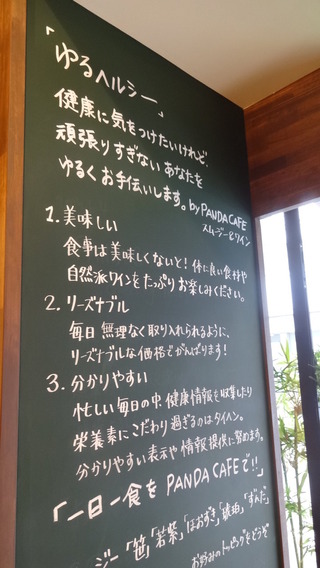 「ゆるヘルシー」
健康に気をつけたいけれど、
頑張りすぎないあなたを
ゆるくお手伝いします。by PANDA CAFE
スムージー&ワイン
1. 美味しい
食事は美味しくないと!体に良い食材や
自然派ワインをたっぷりお楽しみください。
2. リーズナブル
毎日無理なく取り入れられるように、
リーズナブルな価格でがんばります!
3. 分かりやすい
忙しい毎日の中、健康情報を収集したり
栄養素にこだわり過ぎるのはタイヘン。
分かりやすい表示や情報提供に努めます。
「一日一食を PANDA CAFEで!!」
ジー「笹」「若紫」「ほおずき」「琥珀」「ずんだ」
お好みのトッピングをどうぞ